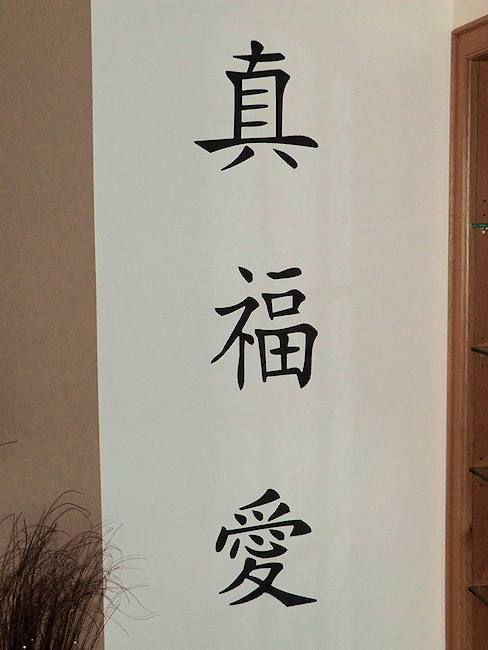 真福愛